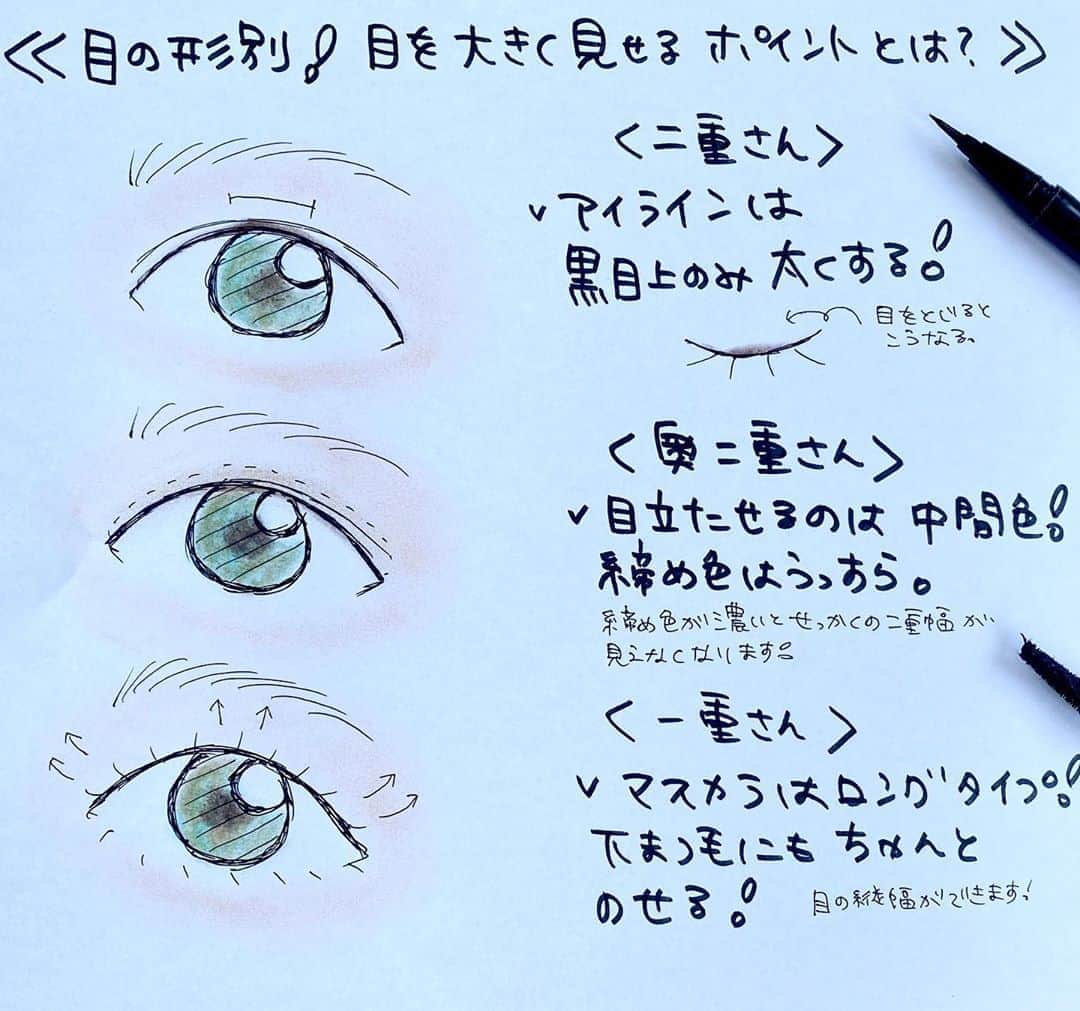 ≪目の形別！目を大きく見せるポイントとは？≫
〈二重さん〉
✓アイラインは
黒目上のみ太くする！
目をとじると
こうなる。
〈奥二重さん〉
✓目立たせるのは中間色！
締め色はうっすら。
締め色が濃いとせっかくの二重幅が
見えなくなります。
〈一重さん〉
✓マスカラはロングタイプ！
下まつ毛にもちゃんと
のせる！
目の縦幅ができます！